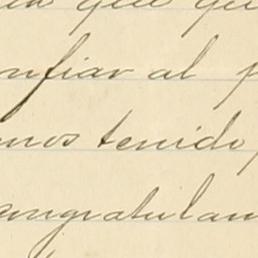 que qu
nfiar al p
mos tenido,
congratulam